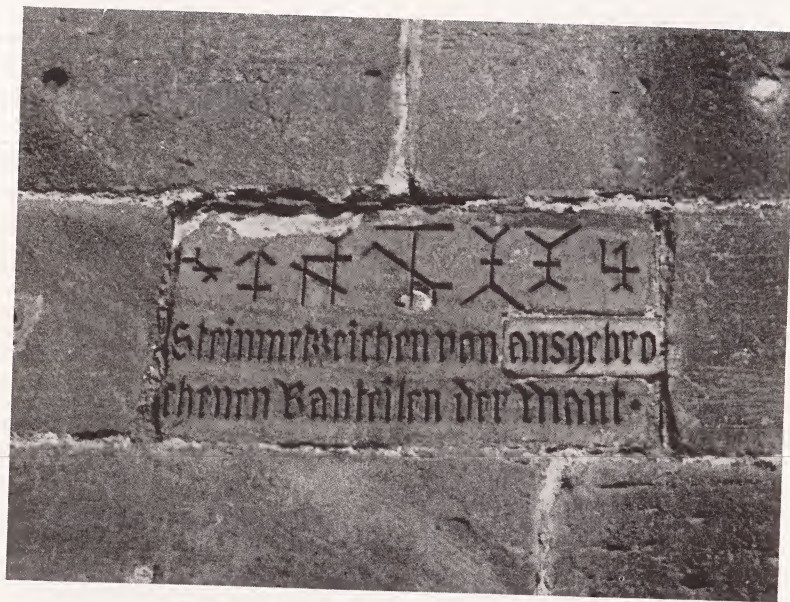 Steinmetzzeichen von ausgebro-
chenen Bauteilen der Maut.